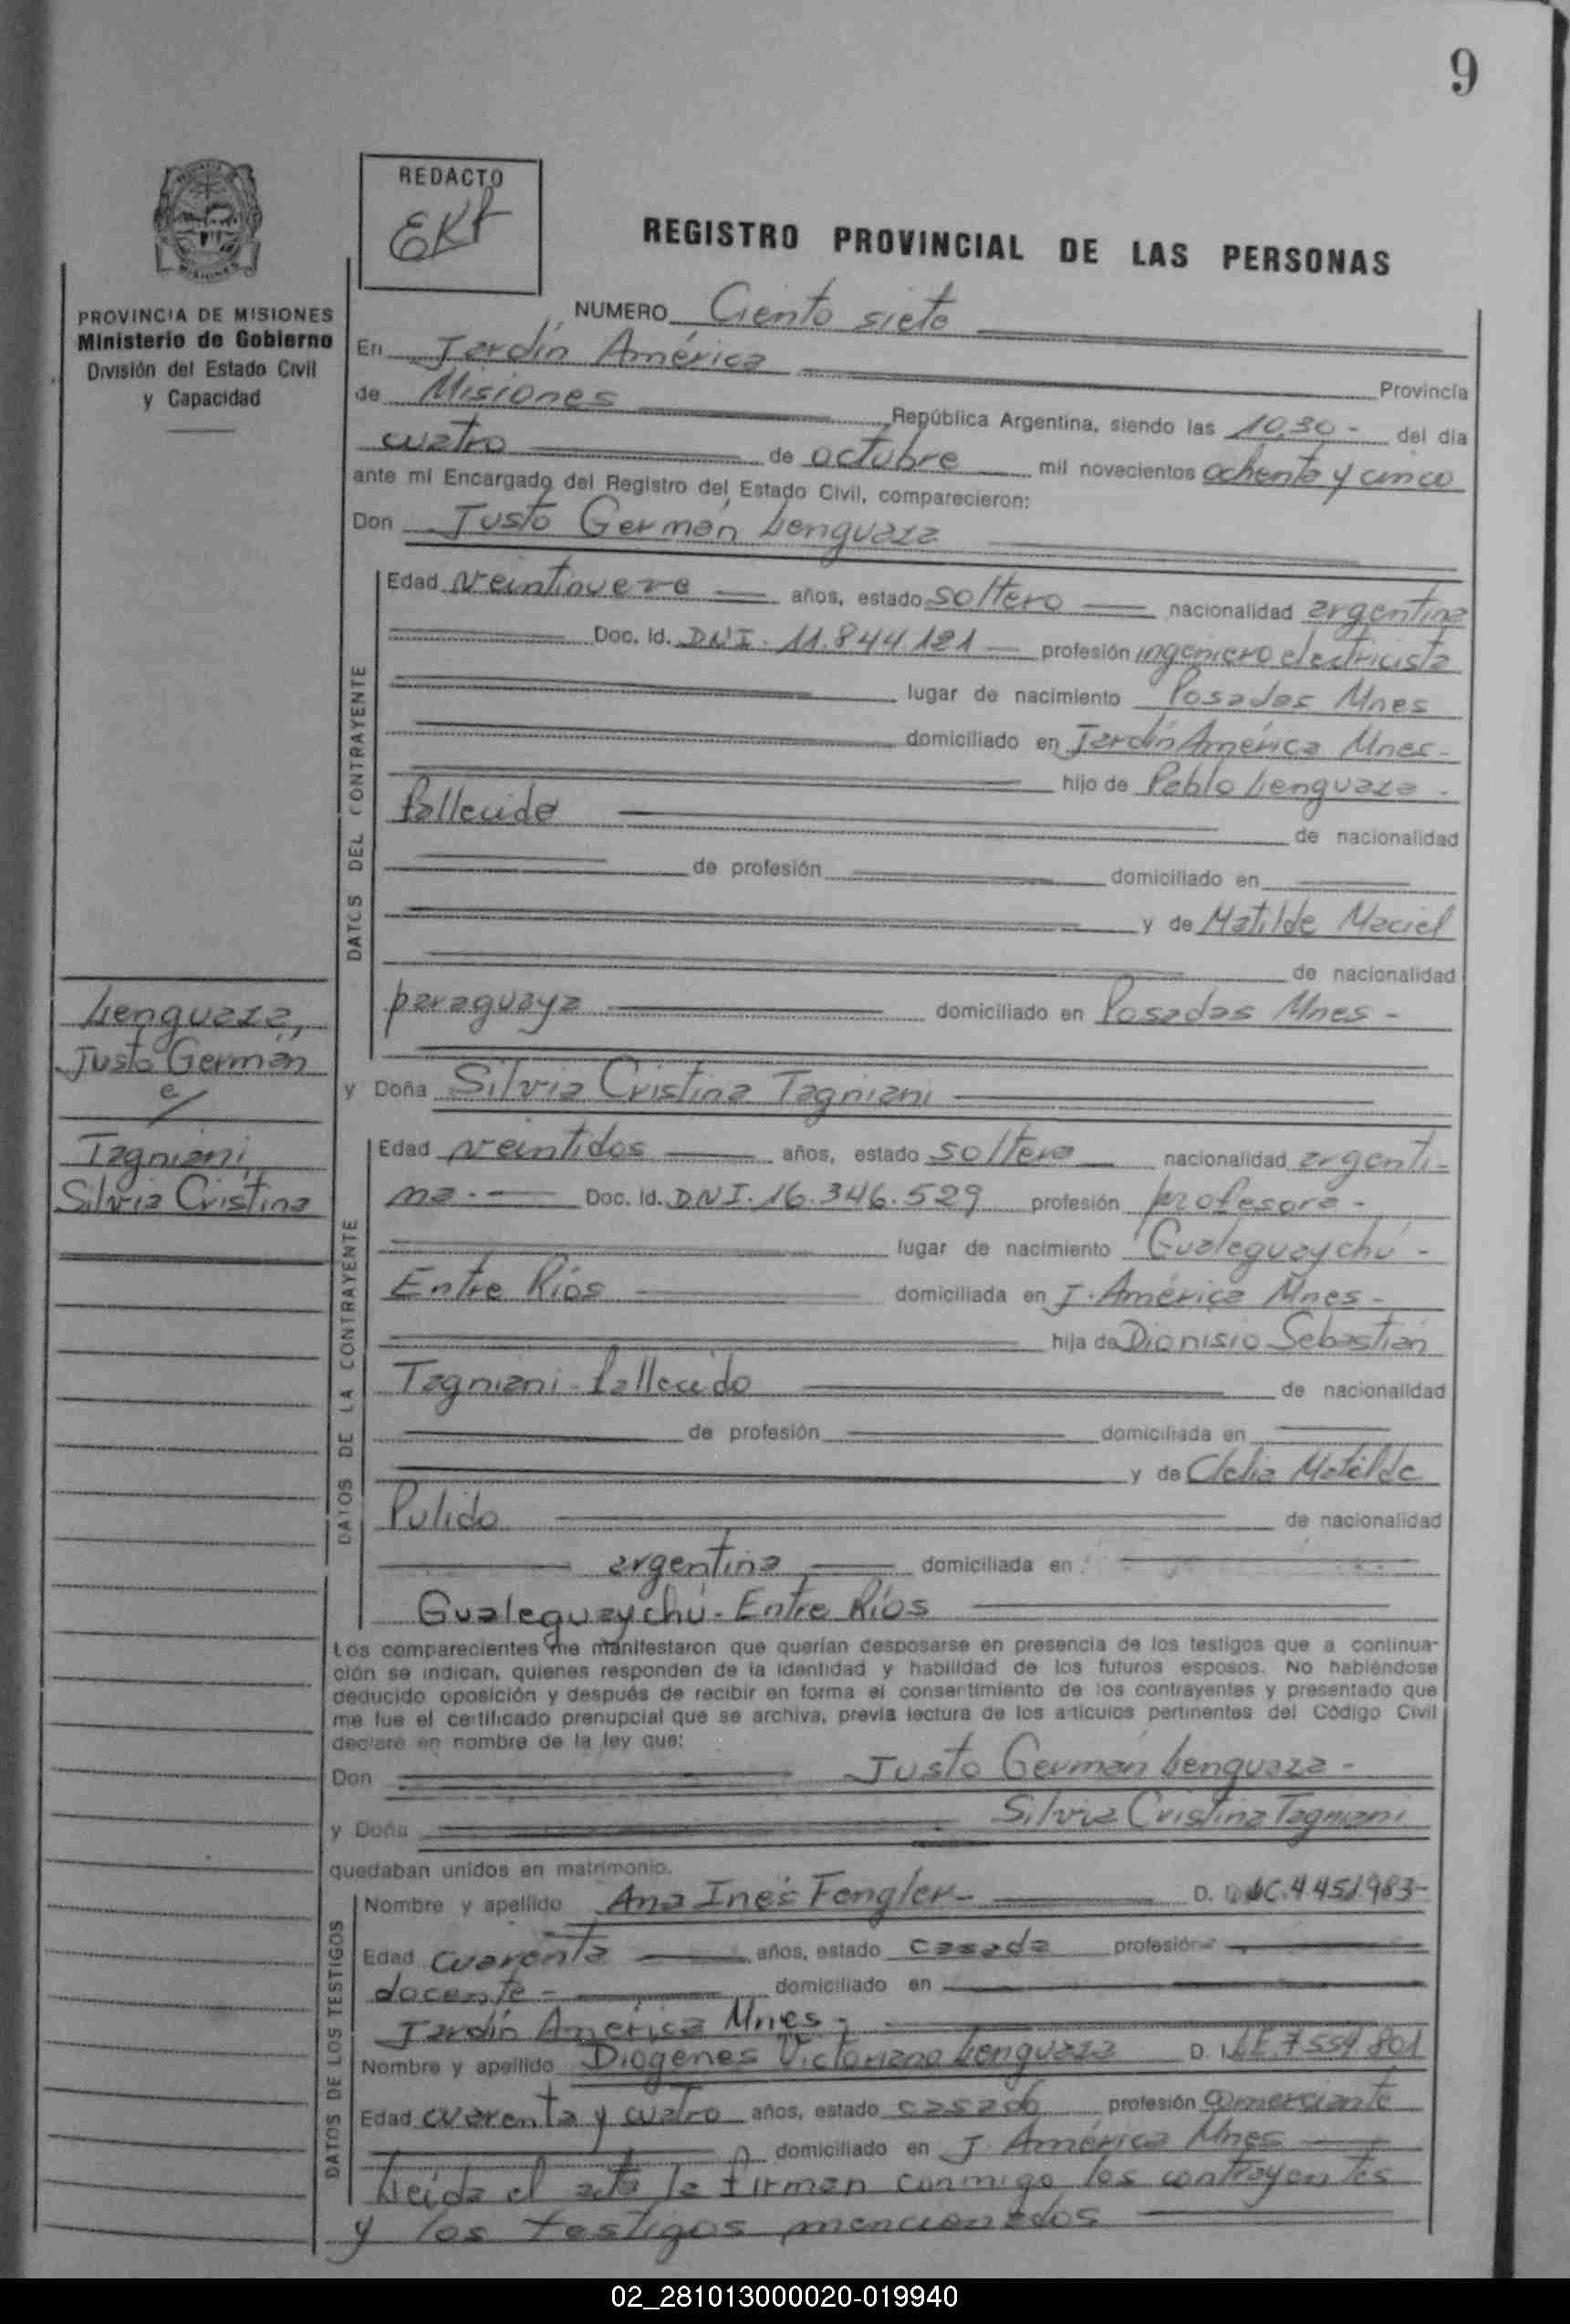 9
REDACTO
EKF
REGISTRO PROVINCIAL DE LAS PERSONAS
PROVINCIA DE MISIONES
Ministerio de Gobierno
División del Estado Civil
y Capacidad
NUMERO Ciento siete
En Jardín América Provincia
de Misiones República Argentina, siendo las 10,30 - del día
cuatro de octubre mil novecientos ochenta y cinco
ante mi Encargado del Registro del Estado Civil, comparecieron:
Don Justo Germán Lenguaza
DATOS DEL CONTRAYENTE
Edad veintinueve años, estado soltero nacionalidad argentina
Doc. Id. DNI. 11.844.121 profesión ingeniero electricista
lugar de nacimiento Posadas Mnes
domiciliado en Jardín América Mnes-
hijo de Pablo Lenguaza -
fallecido de nacionalidad
de profesión domiciliado en
y de Matilde Maciel
de nacionalidad
paraguaya domiciliado en Posadas Mnes -
Lenguaza,
Justo Germán
c/
Tagniani,
Silvia Cristina
y Doña Silvia Cristina Tagniani
DATOS DE LA CONTRAYENTE
Edad veintidos años, estado soltera nacionalidad argenti-
na.- Doc. Id. DNI. 16.346.529 profesión profesora -
lugar de nacimiento Gualeguaychú -
Entre Ríos domiciliada en J. América Mnes -
hija de Dionisio Sebastián
Tagniani - fallecido de nacionalidad
de profesión domiciliada en
y de Clelia Matilde
Pulido de nacionalidad
argentina domiciliada en
Gualeguaychú - Entre Ríos
Los comparecientes me manifestaron que querían desposarse en presencia de los testigos que a continua-
ción se indican, quienes responden de la identidad y habilidad de los futuros esposos. No habiéndose
deducido oposición y después de recibir en forma el consentimiento de los contrayentes y presentado que
me fue el certificado prenupcial que se archiva, previa lectura de los artículos pertinentes del Código Civil
declaré en nombre de la ley que:
Don Justo Germán Lenguaza -
y Doña Silvia Cristina Tagniani
quedaban unidos en matrimonio.
DATOS DE LOS TESTIGOS
Nombre y apellido Ana Inés Fengler - D. I. LC. 4.451.983-
Edad cuarenta años, estado casada profesión
docente - domiciliado en
Jardín América Mnes -
Nombre y apellido Diogenes Victoriano Lenguaza D. I. LE. 7.559.801
Edad cuarenta y cuatro años, estado casado profesión comerciante
domiciliado en J. América Mnes
Leída el acta la firman conmigo los contrayentes
y los testigos mencionados
02_281013000020-019940